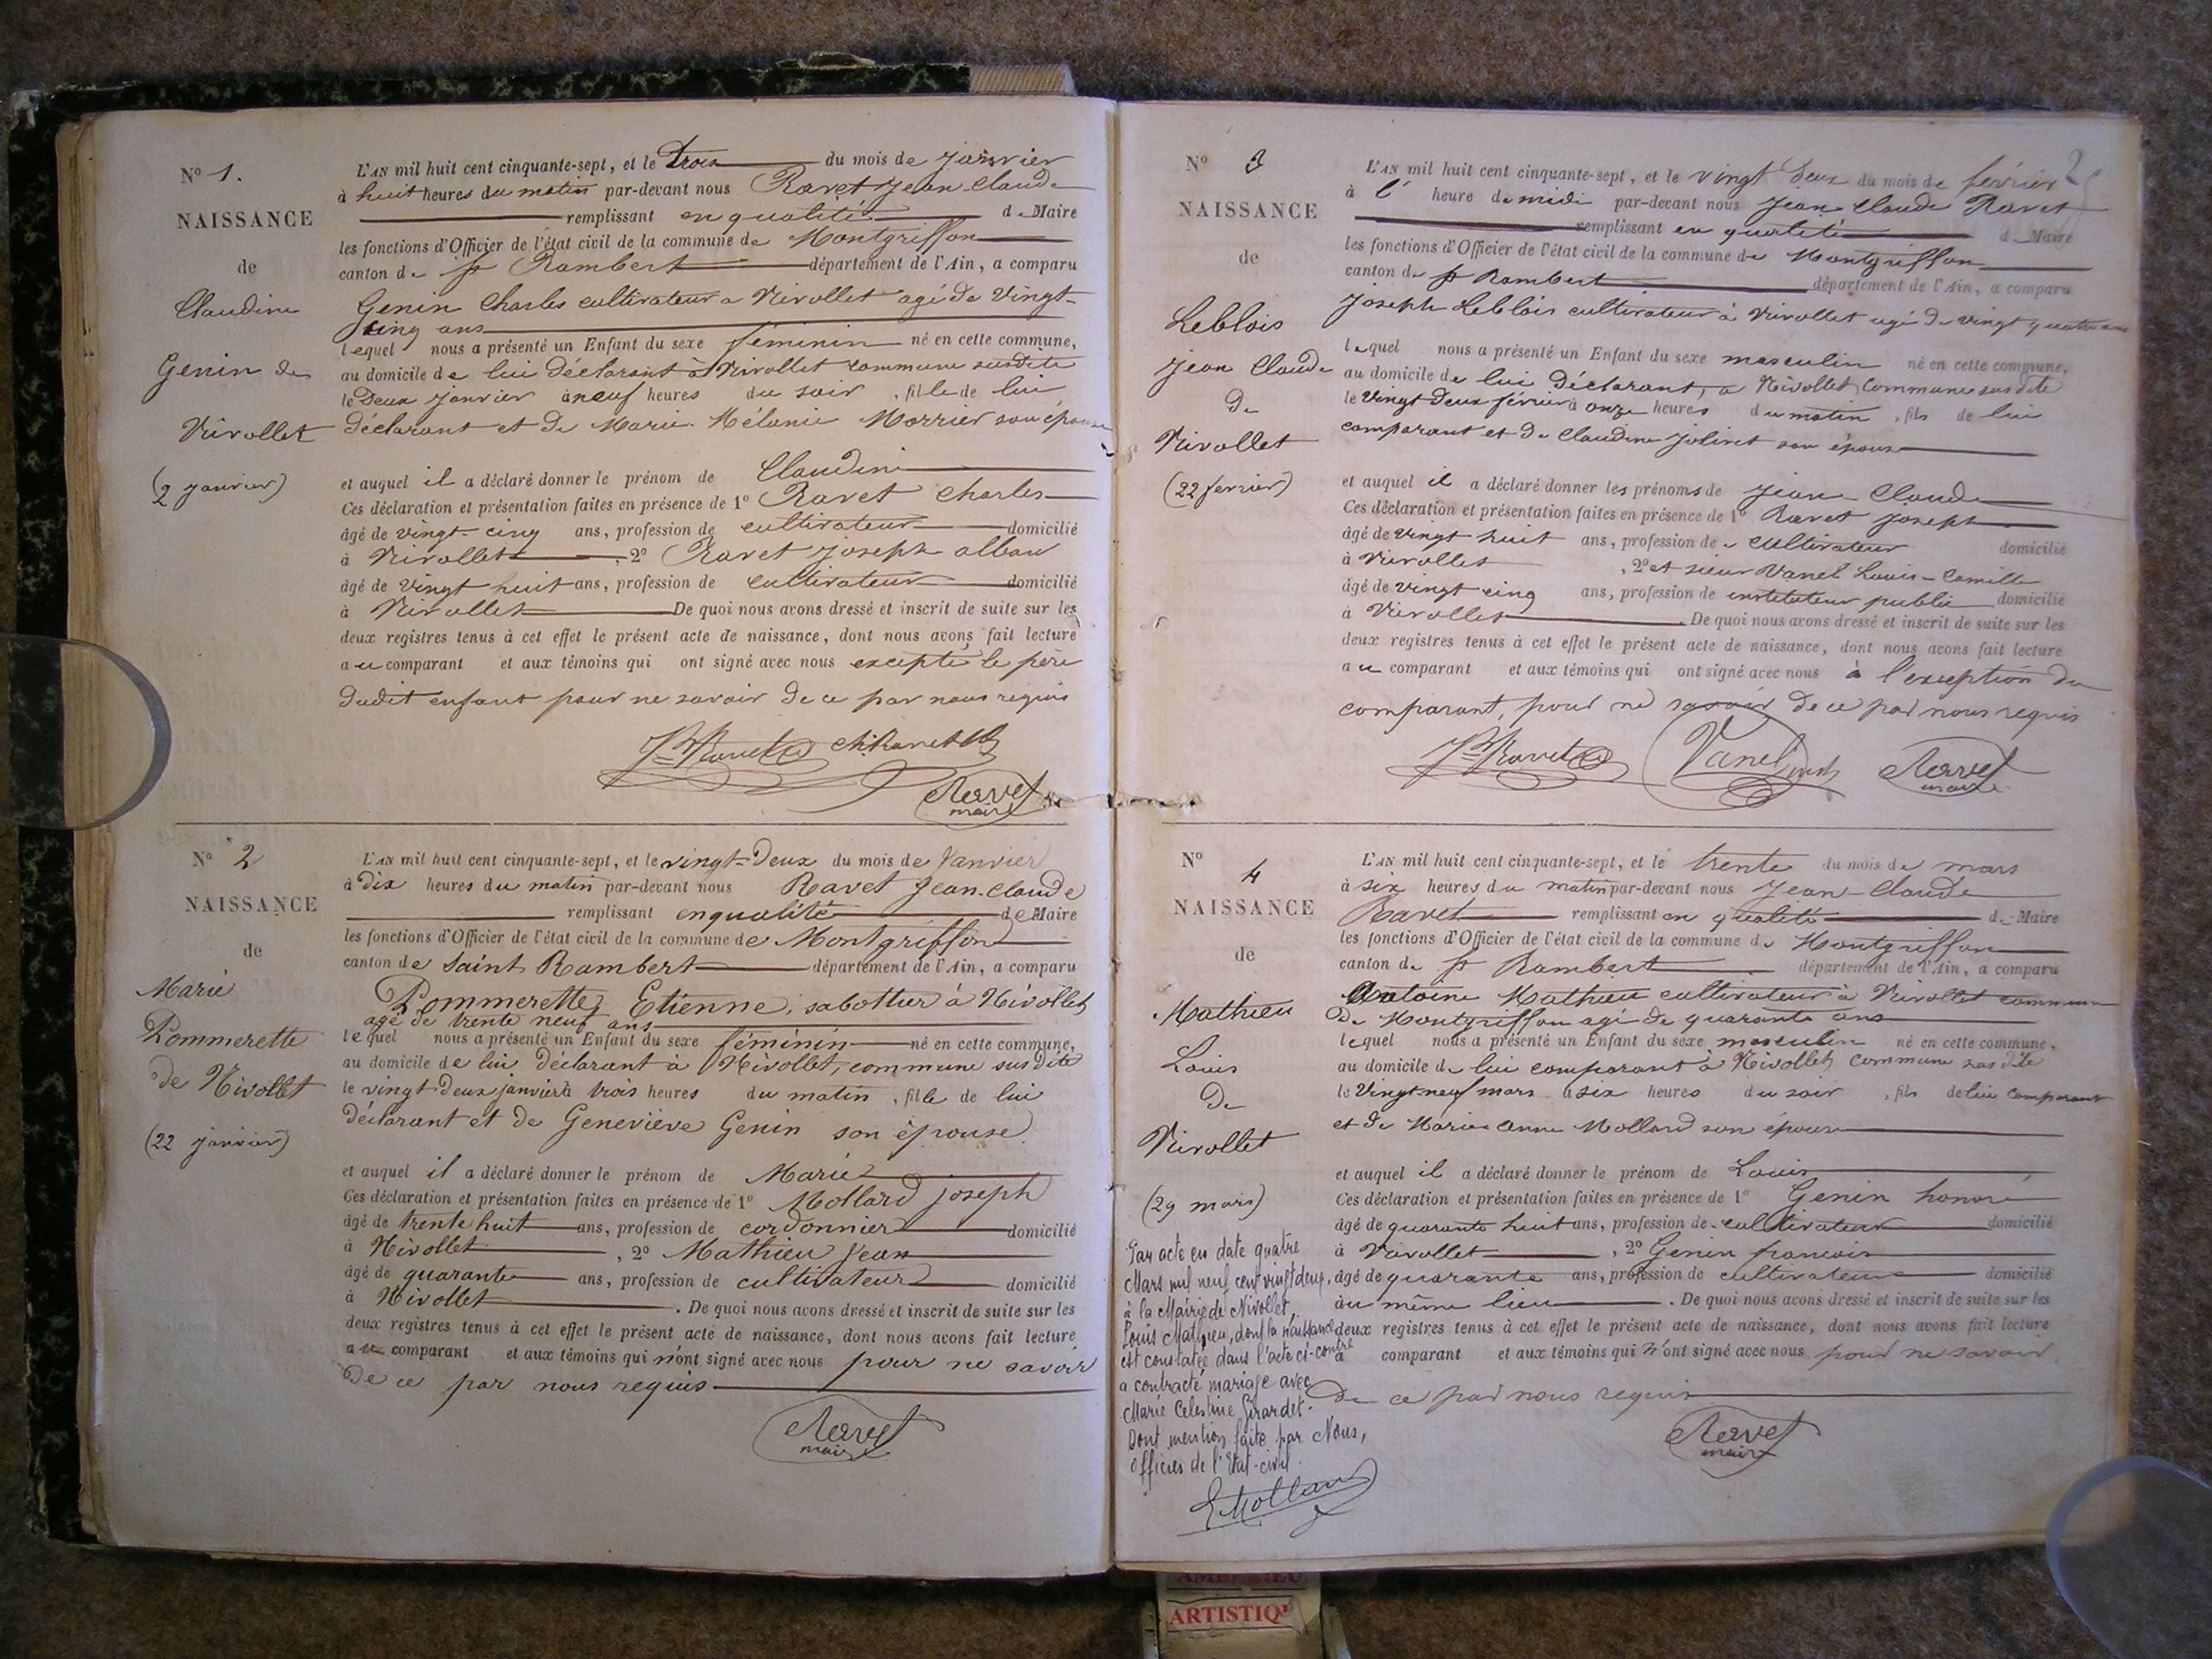 N° 1.
NAISSANCE
de
Claudine
Genin de
Nivollet
(2 janvier)
L'AN mil huit cent cinquante-sept, et le Trois du mois de janvier
à huit heures du matin par-devant nous Ravet Jean Claude
remplissant en qualité de Maire
les fonctions d'Officier de l'état civil de la commune de Montgriffon
canton de St Rambert département de l'Ain, a comparu
Genin Charles cultivateur a Nivollet agé de Vingt-
cinq ans
lequel nous a présenté un Enfant du sexe féminin né en cette commune,
au domicile de lui déclarant à Nivollet commune susdite
le Deux janvier à neuf heures du soir, fille de lui
déclarant et de Marie Mélanie Morrier son épouse
et auquel il a déclaré donner le prénom de Claudine
Ces déclaration et présentation faites en présence de 1° Ravet Charles
âgé de vingt-cinq ans, profession de cultivateur domicilié
à Nivollet, 2° Ravet joseph alban
âgé de vingt huit ans, profession de cultivateur domicilié
à Nivollet De quoi nous avons dressé et inscrit de suite sur les
deux registres tenus à cet effet le présent acte de naissance, dont nous avons fait lecture
au comparant et aux témoins qui ont signé avec nous excepté le père
dudit enfant pour ne savoir de ce par nous requis
Jh Ravet ch. Ravet
Ravet
maire
N° 2
NAISSANCE
de
Marie
Pommerette
de Nivollet
(22 janvier)
L'AN mil huit cent cinquante-sept, et le vingt-Deux du mois de Janvier
à dix heures du matin par-devant nous Ravet Jean-Claude
remplissant en qualité de Maire
les fonctions d'Officier de l'état civil de la commune de Montgriffon
canton de Saint Rambert département de l'Ain, a comparu
Pommerette Etienne, sabottier à Nivollet
agé de trente neuf ans
lequel nous a présenté un Enfant du sexe féminin né en cette commune,
au domicile de lui déclarant à Nivollet, commune sus dite
le vingt-Deux janvier à trois heures du matin, fille de lui
déclarant et de Geneviève Genin son épouse.
et auquel il a déclaré donner le prénom de Marie
Ces déclaration et présentation faites en présence de 1° Mollard joseph
âgé de trente huit ans, profession de cordonnier domicilié
à Nivollet, 2° Mathieu Jean
âgé de quarante ans, profession de cultivateur domicilié
à Nivollet. De quoi nous avons dressé et inscrit de suite sur les
deux registres tenus à cet effet le présent acte de naissance, dont nous avons fait lecture
au comparant et aux témoins qui n'ont signé avec nous pour ne savoir
De ce par nous requis
Ravet
maire
2
N° 3
NAISSANCE
de
Leblois
Jean Claude
De
Nivollet
(22 fevrier)
L'AN mil huit cent cinquante-sept, et le vingt deux du mois de février
à l' heure de midi par-devant nous Jean Claude Ravet
remplissant en qualité de Maire
les fonctions d'Officier de l'état civil de la commune de Montgriffon
canton de St Rambert département de l'Ain, a comparu
Joseph Leblois cultivateur à Nivollet agé de vingt quatre ans
lequel nous a présenté un Enfant du sexe masculin né en cette commune,
au domicile de lui déclarant, a Nivollet commune sus dite
le Vingt Deux février à onze heures du matin, fils de lui
comparant et de Claudine Jolivet son épouse
et auquel il a déclaré donner les prénoms de Jean-Claude
Ces déclaration et présentation faites en présence de 1° Ravet joseph
âgé de vingt huit ans, profession de cultivateur domicilié
à Nivollet, 2° et sieur Vanel Louis-Camille
âgé de vingt cinq ans, profession de instituteur public domicilié
à Nivollet. De quoi nous avons dressé et inscrit de suite sur les
deux registres tenus à cet effet le présent acte de naissance, dont nous avons fait lecture
au comparant et aux témoins qui ont signé avec nous à l'exception du
comparant, pour ne savoir de ce par nous requis
Jh Ravet Vanel inst Ravet
maire
N° 4
NAISSANCE
de
Mathieu
Louis
De
Nivollet
(29 mars)
Par acte en date quatre
Mars mil neuf cent vingt deux,
à la Mairie de Nivollet,
Louis Mathieu, dont la naissance
est constatée dans l'acte ci-contre
a contracté mariage avec
Marie Celestine Girardet.
Dont mention faite par Nous,
officier de l'Etat-civil.
E Mollard
L'AN mil huit cent cinquante-sept, et le trente du mois de mars
à six heures du matin par-devant nous Jean-Claude
Ravet remplissant en qualité de Maire
les fonctions d'Officier de l'état civil de la commune de Montgriffon
canton de St Rambert département de l'Ain, a comparu
Antoine Mathieu cultivateur à Nivollet commune
De Montgriffon agé de quarante ans
lequel nous a présenté un Enfant du sexe masculin né en cette commune,
au domicile de lui comparant à Nivollet commune sus dite
le Vingt-neuf mars à six heures du soir, fils de lui comparant
et de Marie Anne Mollard son épouse
et auquel il a déclaré donner le prénom de Louis
Ces déclaration et présentation faites en présence de 1° Genin honoré
âgé de quarante huit ans, profession de cultivateur domicilié
à Nivollet, 2° Genin francois
âgé de quarante ans, profession de cultivateur domicilié
au même lieu. De quoi nous avons dressé et inscrit de suite sur les
deux registres tenus à cet effet le présent acte de naissance, dont nous avons fait lecture
a comparant et aux témoins qui n'ont signé avec nous pour ne savoir
De ce par nous requis
Ravet
maire
ARTISTIQ